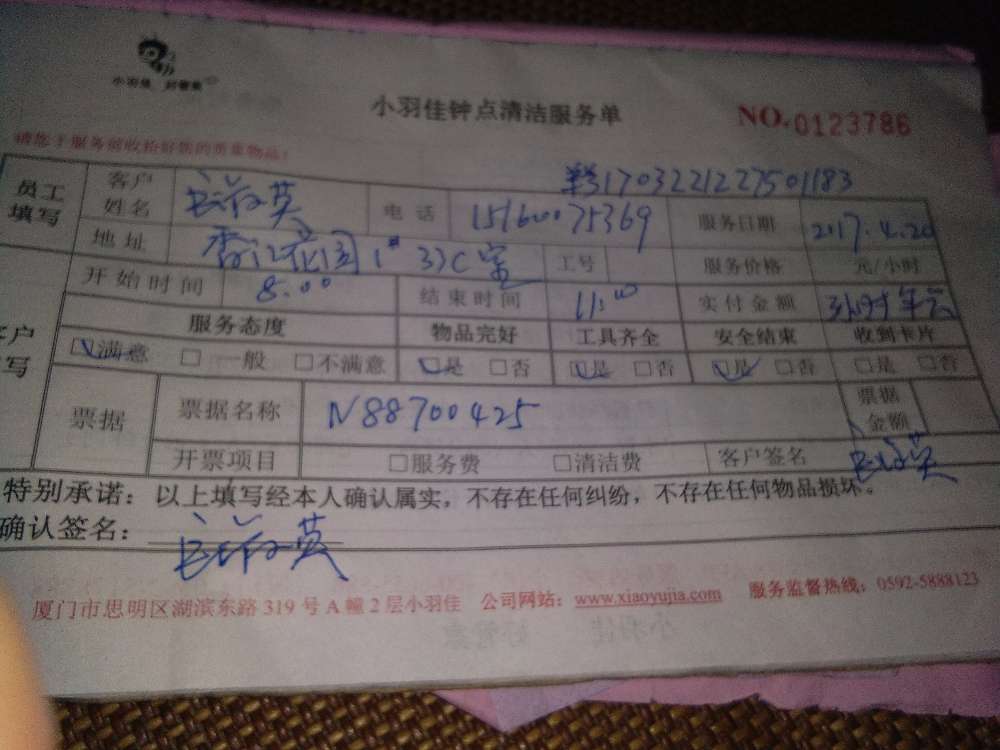 小羽佳 好管家
小羽佳钟点清洁服务单 NO.0123786
请您于服务前收拾好您的贵重物品!
单号1703221227501183
员工填写 客户姓名 英 电话 15160075369 服务日期 2017.4.20
地址 香江花园1# 33C室 工号 服务价格 元/小时
开始时间 8.00 结束时间 11:00 实付金额 3小时
服务态度 物品完好 工具齐全 安全结束 收到卡片
满意 □一般 □不满意 是 □否 是 □否 是 □否 □是 □否
票据 票据名称 N88700425 票据金额
开票项目 □服务费 □清洁费 客户签名 英
特别承诺:以上填写经本人确认属实,不存在任何纠纷,不存在任何物品损坏。
确认签名: 英
厦门市思明区湖滨东路319号A幢2层小羽佳 公司网站:www.xiaoyujia.com 服务监督热线:0592-5888123